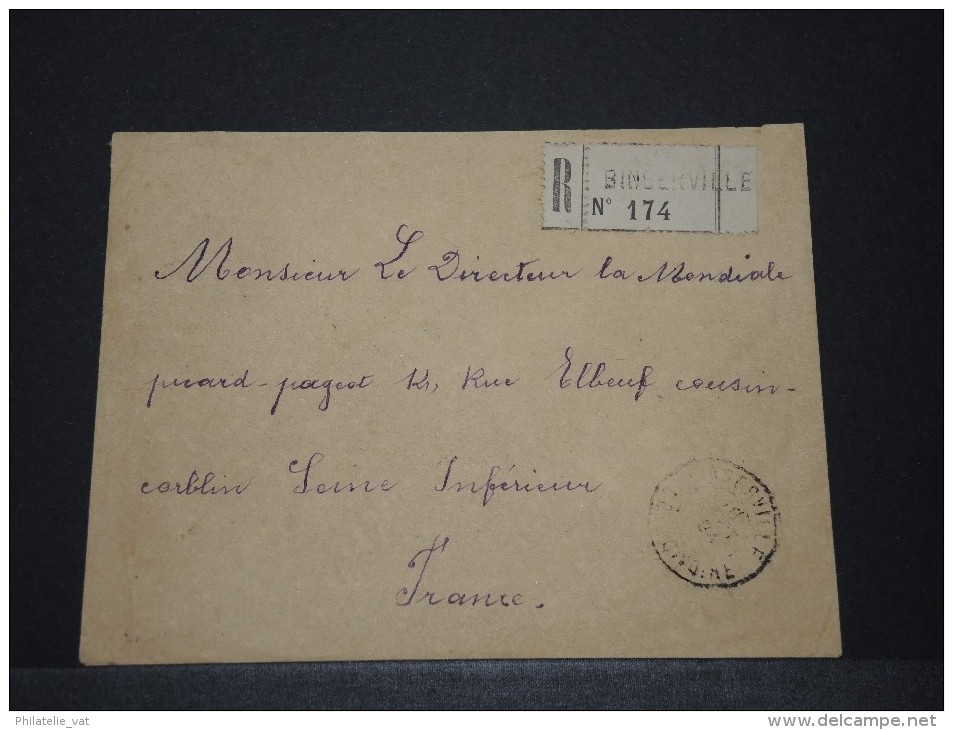 R BINGERVILLE
N° 174
Monsieur Le Directeur la Mondiale
picard-pageot Rue Elbeuf cousin-
corblin Seine Inférieur
France.
Philatelie_vat
www.delcampe.net